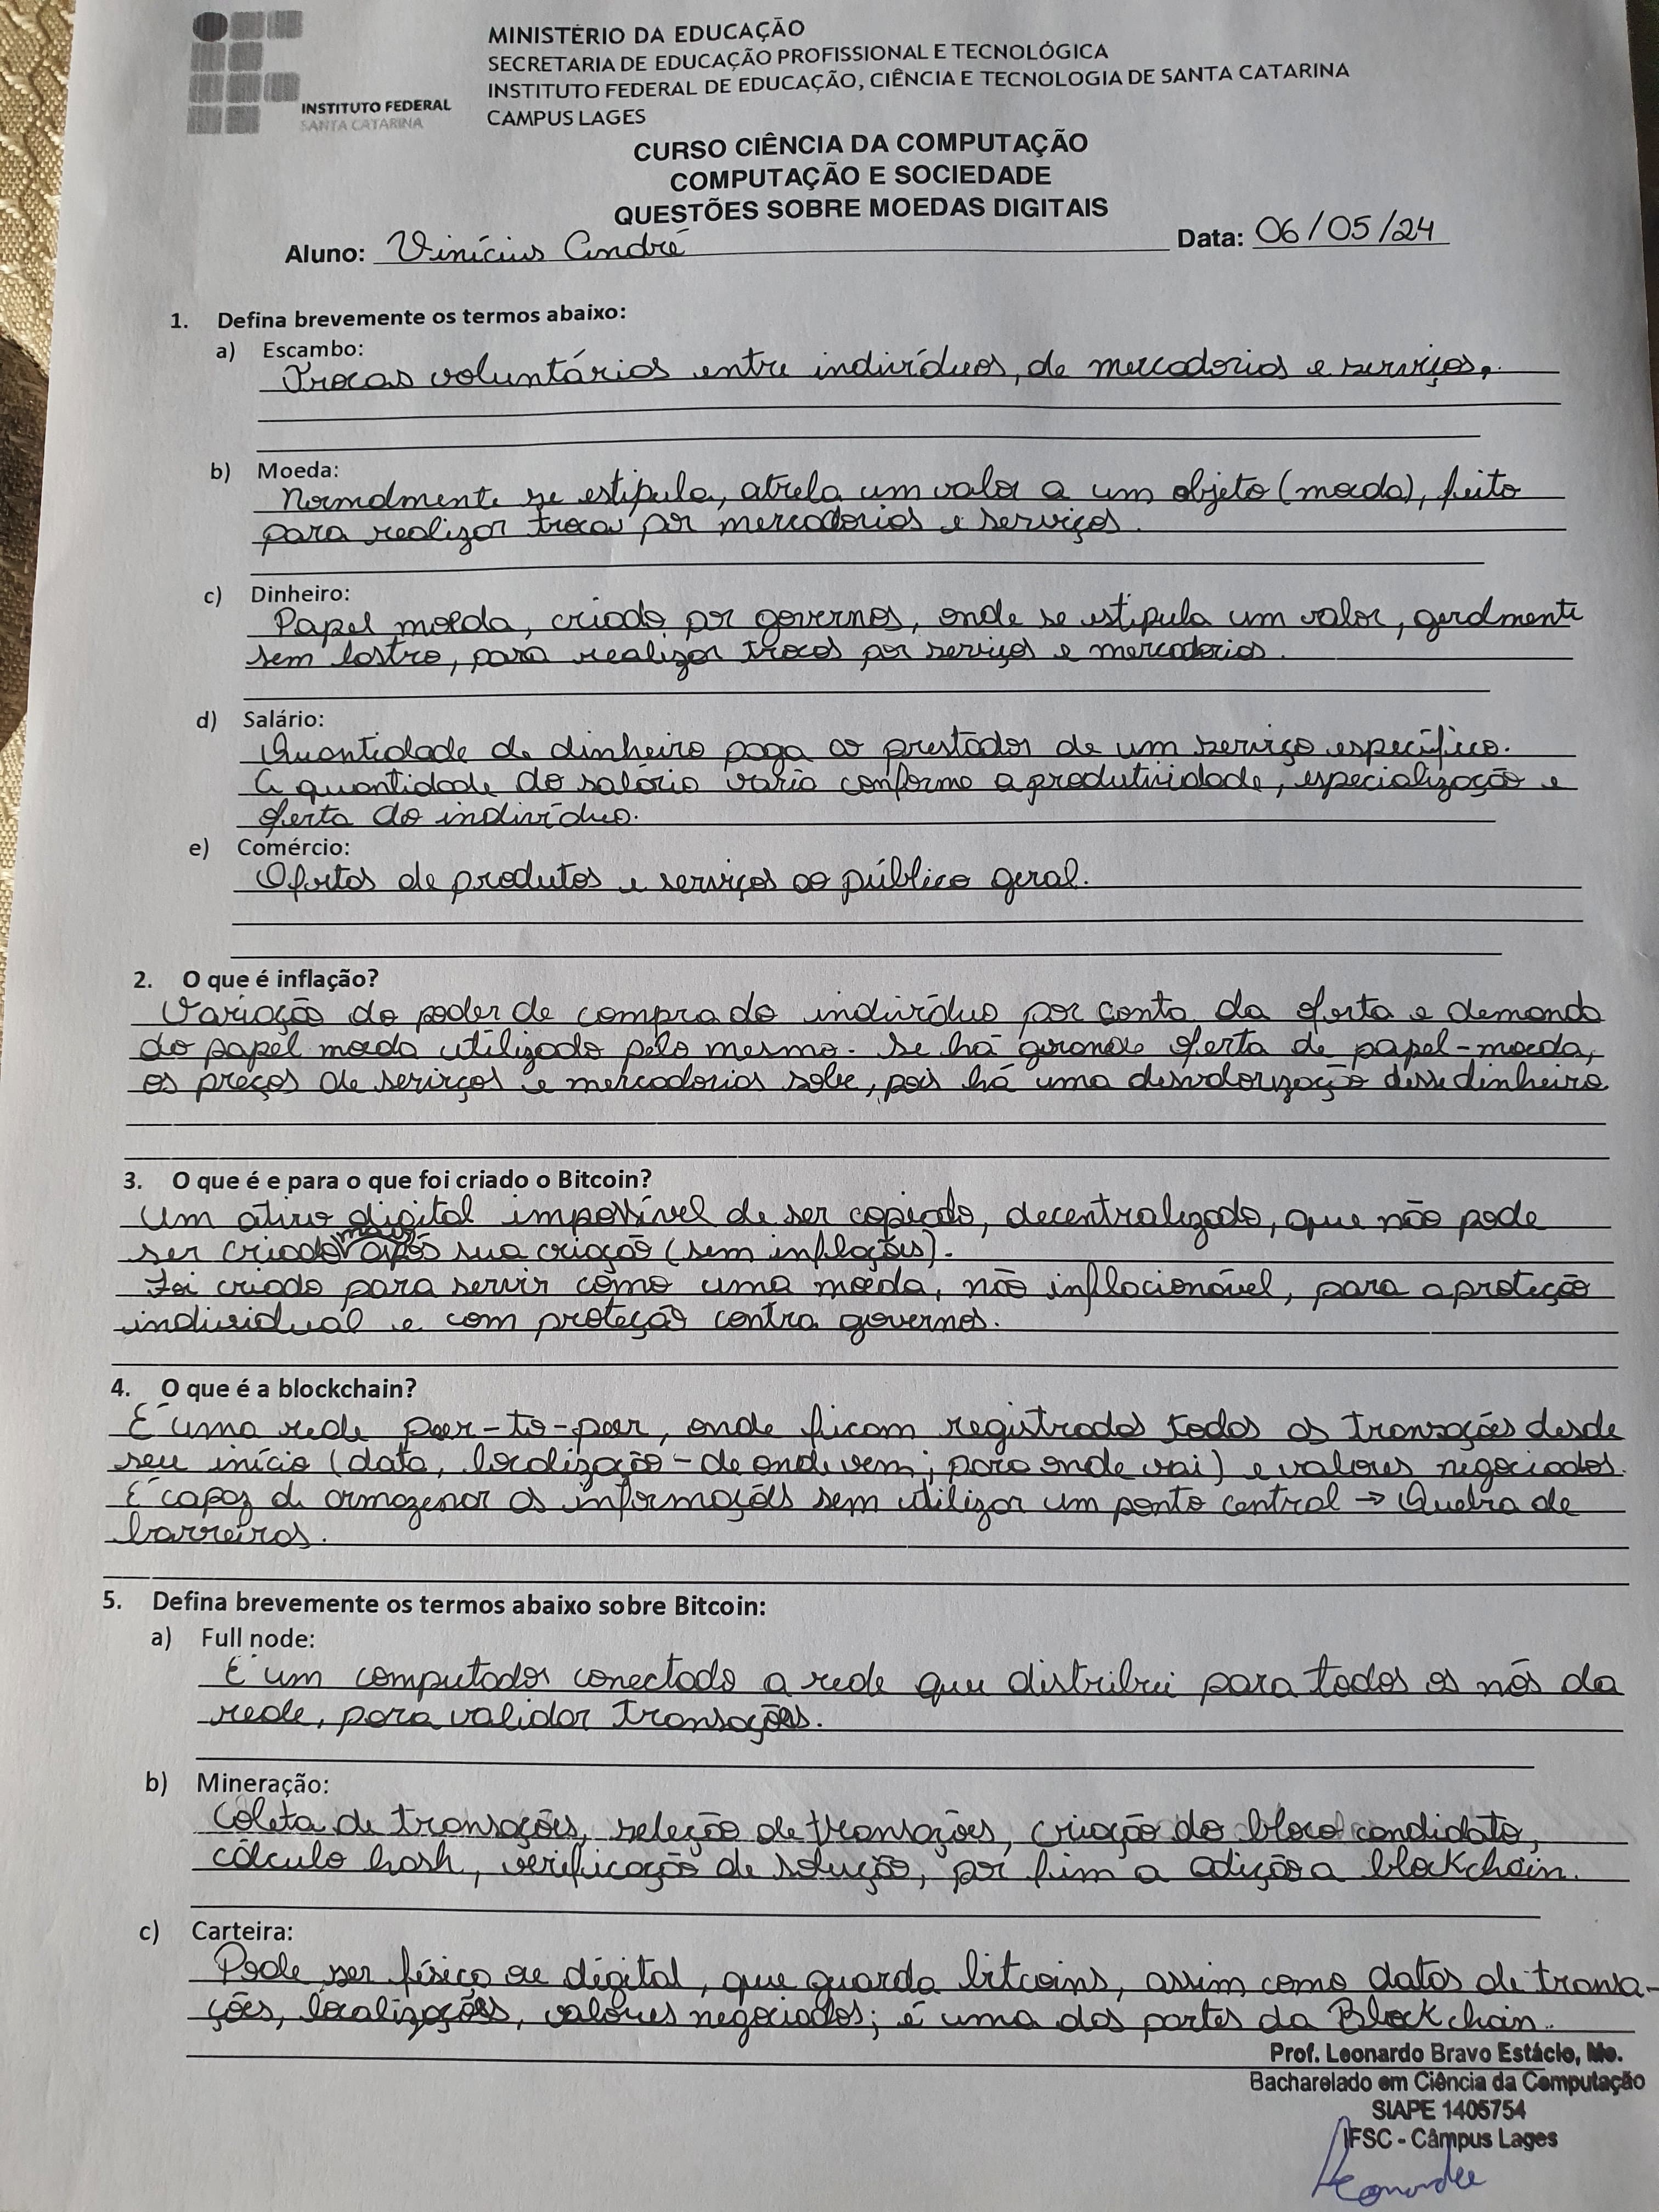 MINISTÉRIO DA EDUCAÇÃO
SECRETARIA DE EDUCAÇÃO PROFISSIONAL E TECNOLÓGICA
INSTITUTO FEDERAL DE EDUCAÇÃO, CIÊNCIA E TECNOLOGIA DE SANTA CATARINA
CAMPUS LAGES
INSTITUTO FEDERAL
SANTA CATARINA
CURSO CIÊNCIA DA COMPUTAÇÃO
COMPUTAÇÃO E SOCIEDADE
QUESTÕES SOBRE MOEDAS DIGITAIS
Aluno: Vinícius André Data: 06/05/24
1. Defina brevemente os termos abaixo:
a) Escambo:
Trocas voluntárias entre indivíduos, de mercadorias e serviços.
b) Moeda:
Normalmente se estipula, atrela um valor a um objeto (moeda), feito
para realizar trocas por mercadorias e serviços.
c) Dinheiro:
Papel moeda, criado por governos, onde se estipula um valor, geralmente
sem lastro, para realizar trocas por serviços e mercadorias.
d) Salário:
Quantidade de dinheiro paga ao prestador de um serviço específico.
A quantidade do salário varia conforme a produtividade, especialização e
oferta do indivíduo.
e) Comércio:
Ofertas de produtos e serviços ao público geral.
2. O que é inflação?
Variação do poder de compra do indivíduo por conta da oferta e demanda
do papel moeda utilizado pelo mesmo. Se há grande oferta de papel-moeda,
os preços de serviços e mercadorias sobe, pois há uma desvalorização desse dinheiro
3. O que é e para o que foi criado o Bitcoin?
Um ativo digital impossível de ser copiado, decentralizado, que não pode
ser criado mais após sua criação (sem inflações).
Foi criado para servir como uma moeda, não inflacionável, para a proteção
individual e com proteção contra governos.
4. O que é a blockchain?
É uma rede peer-to-peer, onde ficam registrados todas as transações desde
seu início (data, localização - de onde vem; para onde vai) e valores negociados.
É capaz de armazenar as informações sem utilizar um ponto central → Quebra de
barreiras.
5. Defina brevemente os termos abaixo sobre Bitcoin:
a) Full node:
É um computador conectado a rede que distribui para todos os nós da
rede, para validar transações.
b) Mineração:
Coleta de transações, seleção de transações, criação do bloco candidato,
cálculo hash, verificação de solução, por fim a adição a blockchain.
c) Carteira:
Pode ser físico ou digital, que guarda bitcoins, assim como datas de transa-
ções, localizações, valores negociados; é uma das partes da Blockchain.
Prof. Leonardo Bravo Estácio, Me.
Bacharelado em Ciência da Computação
SIAPE 1405754
IFSC - Câmpus Lages